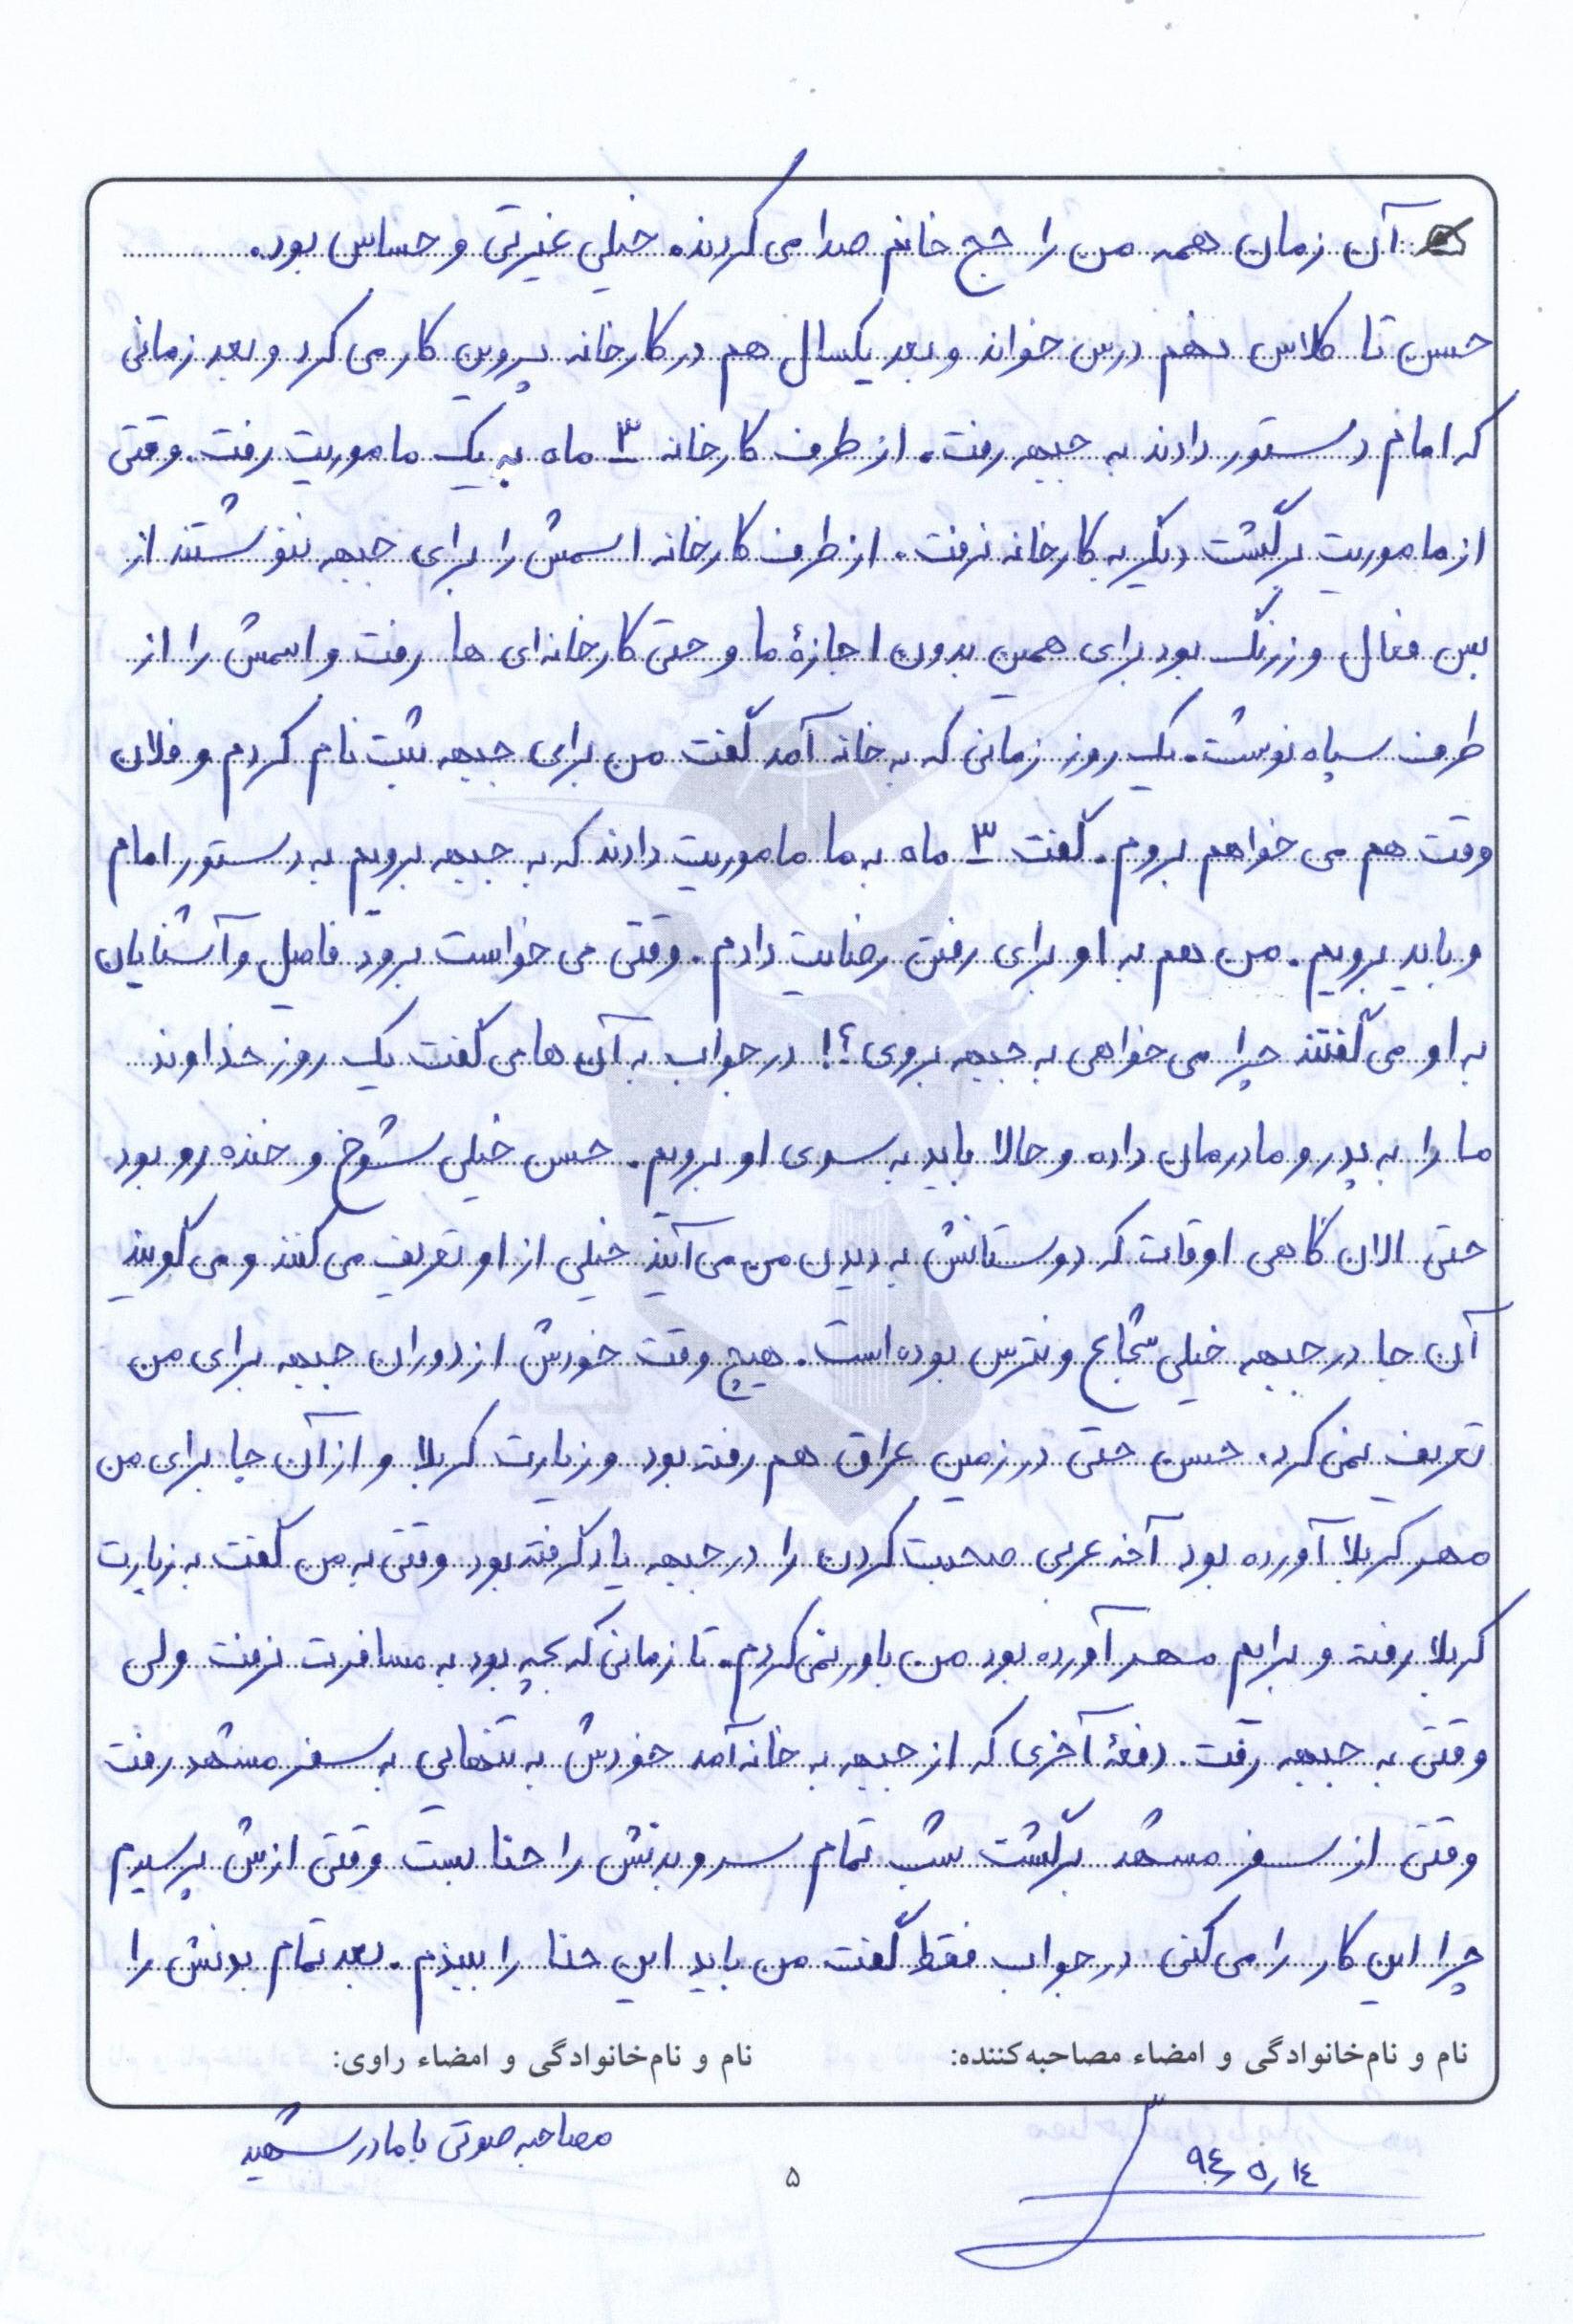 آن زمان همه من را حج خانم صدا می کردند. خیلی غیرتی و حساس بود.
حسن تا کلاس نهم درس خواند و بعد یکسال هم در کارخانه پروین کار می کرد و بعد زمانی
که امام دستور دادند به جبهه رفت. از طرف کارخانه ۳ ماه به یک ماموریت رفت. وقتی
از ماموریت برگشت دیگر به کارخانه نرفت. از طرف کارخانه اسمش را برای جبهه ننوشتند از
بس فعال و زرنگ بود برای همین بدون اجازهٔ ما و حتی کارخانه‌ای ها رفت و اسمش را از
طرف سپاه نوشت. یک روز زمانی که به خانه آمد گفت من برای جبهه ثبت نام کردم و فلان
وقت هم می خواهم بروم. گفت ۳ ماه به ما ماموریت دادند که به جبهه برویم به دستور امام
و باید برویم. من هم به او برای رفتن رضایت دادم. وقتی می خواست برود فامیل و آشنایان
به او می گفتند چرا می خواهی به جبهه بروی؟! در جواب به آن ها می گفت یک روز خداوند
ما را به پدر و مادرمان داده و حالا باید به سوی او برویم. حسن خیلی شوخ و خنده رو بود
حتی الان گاهی اوقات که دوستانش به دیدن من می آیند خیلی از او تعریف می کنند و می گویند
آن جا در جبهه خیلی شجاع و نترس بوده است. هیچ وقت خودش از دوران جبهه برای من
تعریف نمی کرد. حسن حتی در زمین عراق هم رفته بود و زیارت کربلا و از آن جا برای من
مهر کربلا آورده بود آخه عربی صحبت کردن را در جبهه یاد گرفته بود وقتی به من گفت به زیارت
کربلا رفته و برایم مهر آورده بود من باور نمی کردم. تا زمانی که بچه بود به مسافرت نرفت ولی
وقتی به جبهه رفت. دفعهٔ آخری که از جبهه به خانه آمد خودش به تنهایی به سفر مشهد رفت
وقتی از سفر مشهد برگشت شب تمام سر و بدنش را حنا بست وقتی ازش پرسیدم
چرا این کار را می کنی در جواب فقط گفت من باید این حنا را ببندم. بعد تمام بدنش را
نام و نام‌خانوادگی و امضاء مصاحبه‌کننده: نام و نام‌خانوادگی و امضاء راوی:
مصاحبه صوتی با مادر شهید
۹۴/۵/۱۴
۵